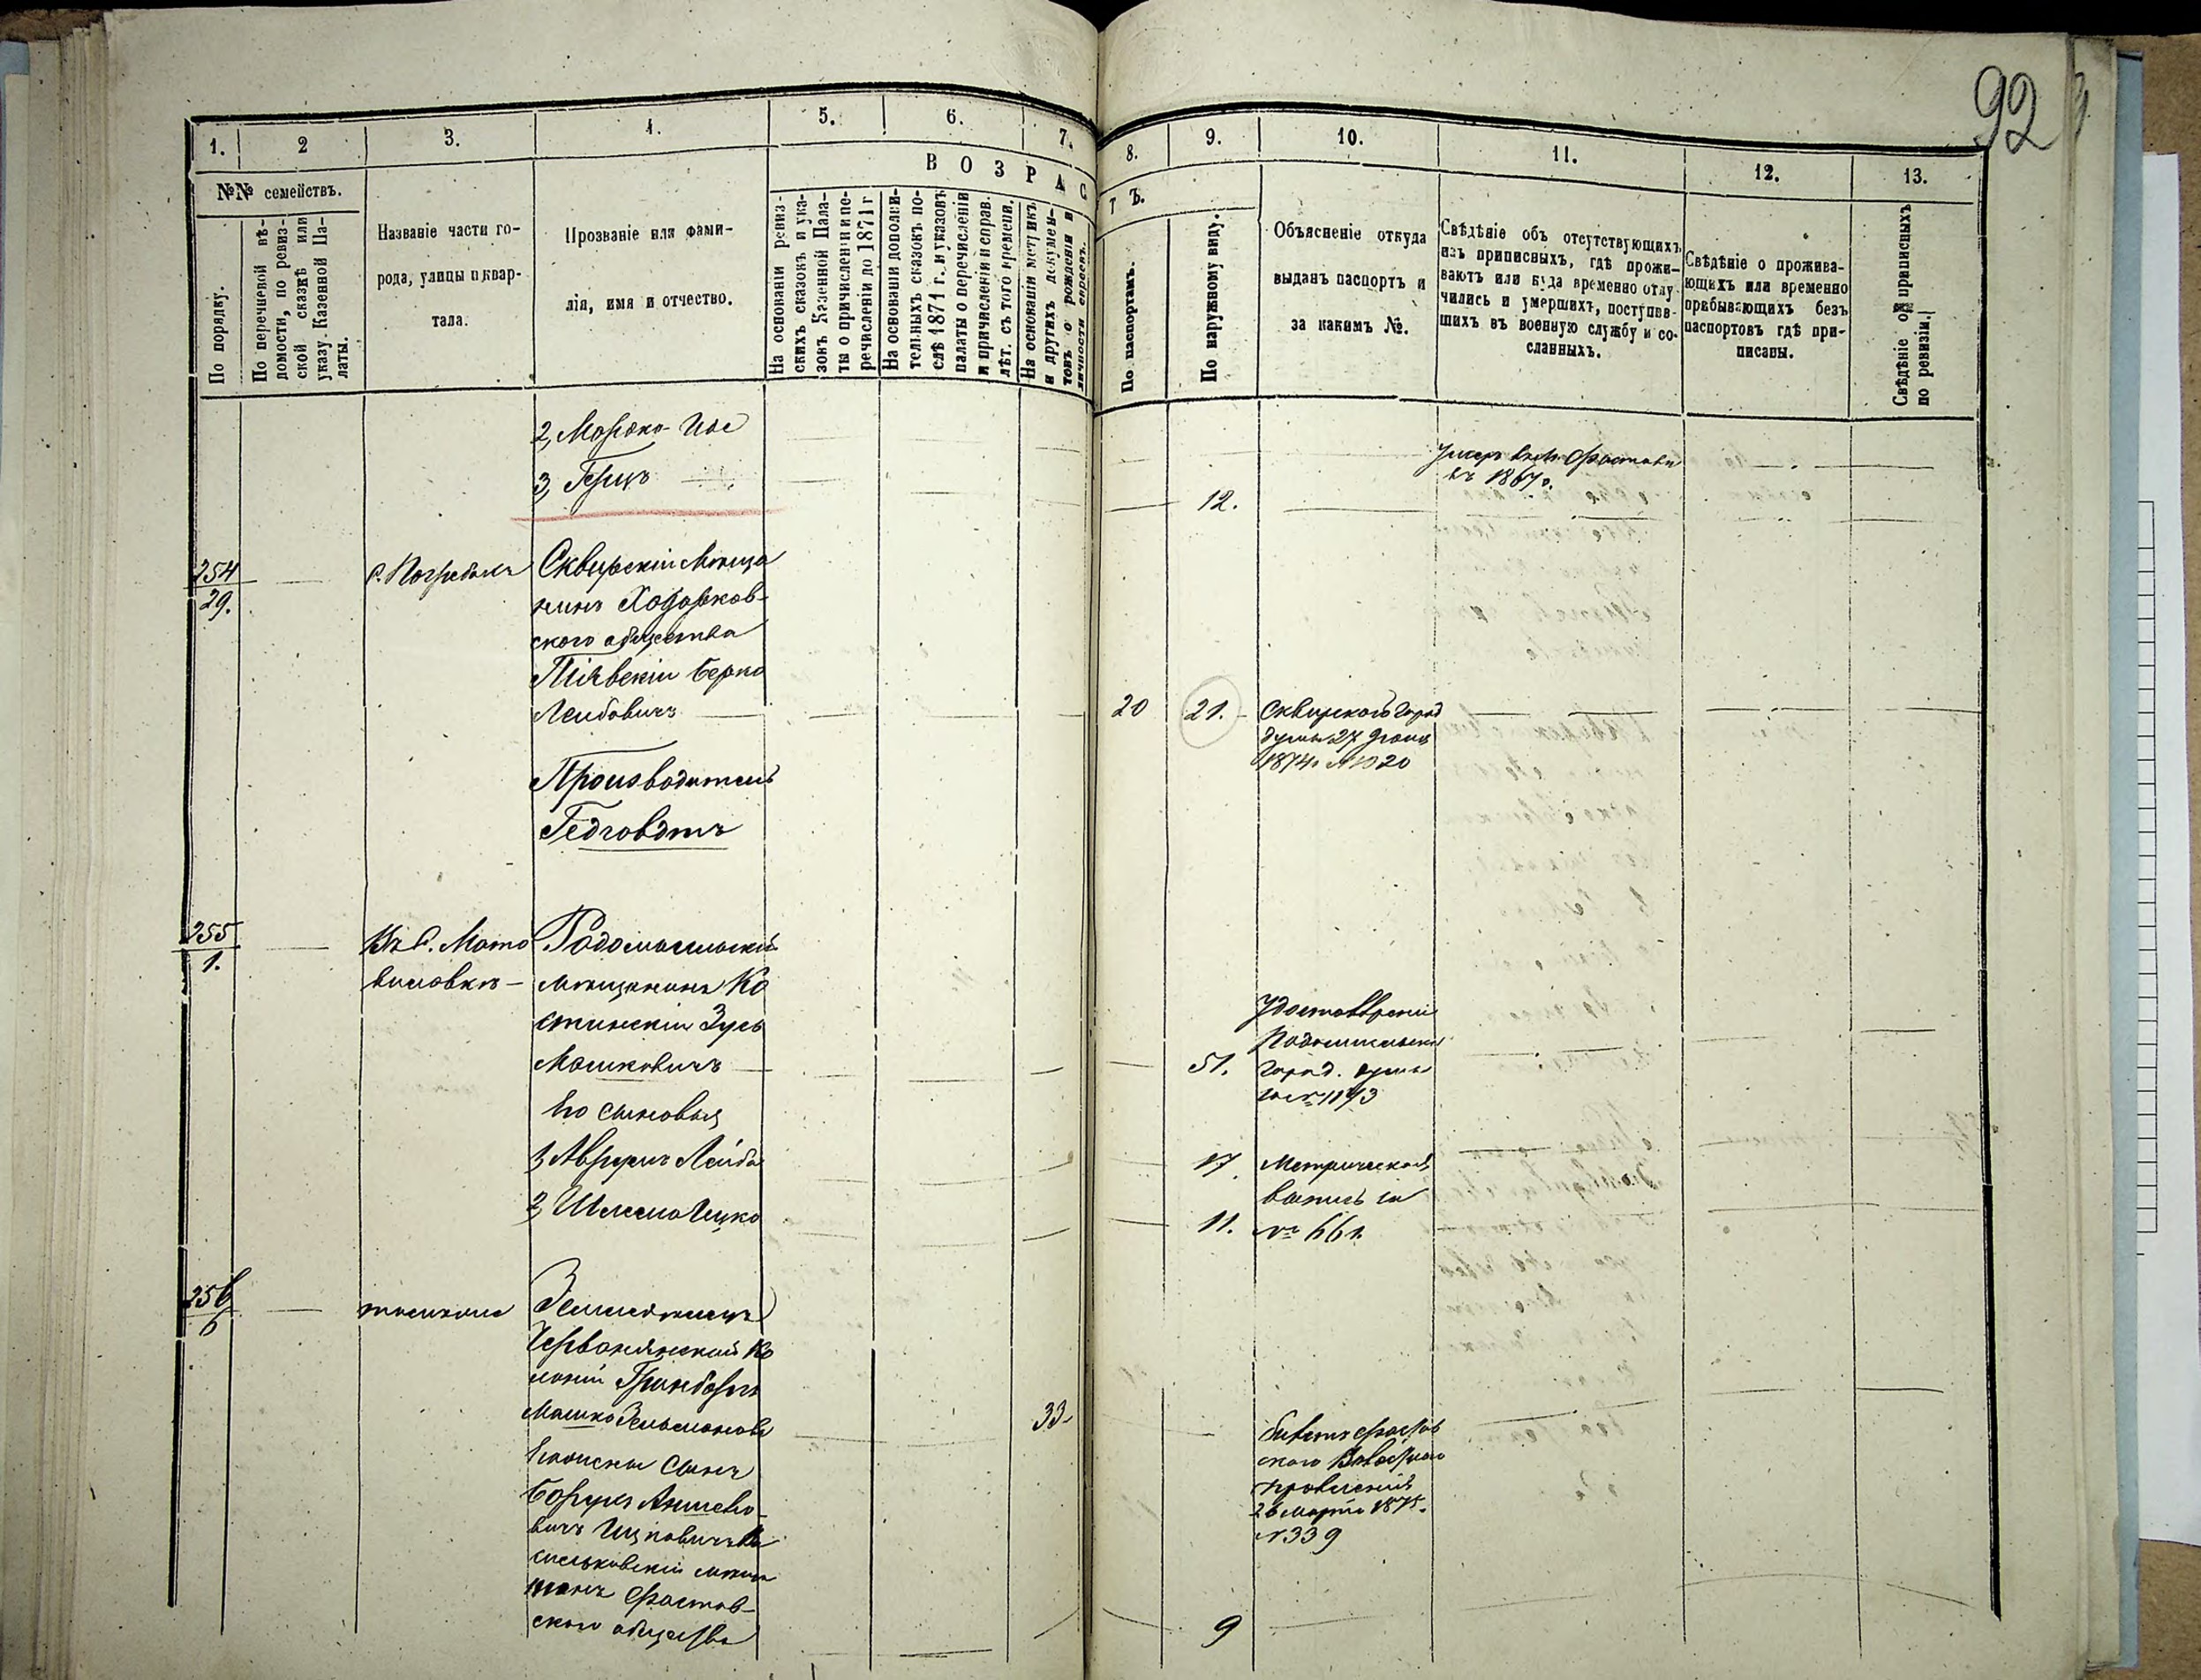 92
1.
2
3.
4.
5.
6.
7.
8.
9.
10.
11.
12.
13.
№№ семействъ.
По порядку.
По перечневой вѣ-
домости, по ревиз-
ской сказкѣ или
указу Казенной Па-
латы.
Названіе части го-
рода, улицы и квар-
тала.
Прозваніе или фами-
лія, имя и отчество.
ВОЗРАС
ТЪ.
На основаніи ревиз-
скихъ сказокъ и ука-
зовъ Казенной Пала-
ты о причисленіи и пе-
речисленіи до 1871 г
На основаніи дополни-
тельныхъ сказокъ по-
слѣ 1871 г. и указовъ
палаты о перечисленіи
и причисленіи и справ.
лѣт. съ того времени.
На основаніи метрикъ
и другихъ докумен-
товъ о рожденіи и
личности евреевъ.
По паспортамъ.
По наружному виду.
Объясненіе откуда
выданъ паспортъ и
за какимъ №.
Свѣдѣніе объ отсутствующихъ
изъ приписныхъ, гдѣ прожи-
ваютъ или куда временно отлу-
чились и умершихъ, поступив-
шихъ въ военную службу и со-
сланныхъ.
Свѣдѣніе о прожива-
ющихъ или временно
прабывающихъ безъ
паспортовъ гдѣ при-
писаны.
Свѣдѣніе объ приписныхъ
по ревизіи.
2, Мордко-Іос
3, Герцъ
12.
Умеръ въ м. Фастовѣ
въ 1867 г.
254
29.
с. Погребахъ
Сквирскій мѣща
нинъ Ходорков-
ского общества
Берко
Лейбовичъ
20
21.
Сквирской Город
думы 27
1874 № 1020
Производитель
255
1.
Въ С. Мото
виловкѣ
Радомысльскій
мѣщанинъ Ко
стинскій Зусь
Мошковичъ
51.
Радомысльской
Город. думы
за № 1173
Его сыновья
1, Аврумъ Лейба
17.
Метрическая
выпись за
2, Шлема Ицко
11.
№ 661.
256
6
тамъ же
Земледѣлецъ
Червонянской ко
лоніи Гринборгъ
Мошко Зельманов
33
Билетъ Фастов
ского Волостного
правленія
26 Марта 1875.
№ 339
сынъ
Борухъ
Ицковичъ Ва
сильковскій мѣща
нинъ Фастов-
ского общества
9